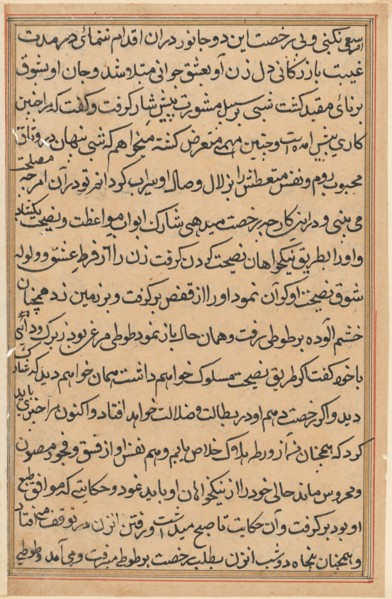 امری نکنی و بی رخصت این دو جانور در ان اقدام ننمائی در مدت
غیبت بازرکانی دل زن او بعشق جوانی مبتلا شد و جان او بشوق
برنائی مقید کشت شبی بر سبیل مشورت پیش شارک رفت و کفت که مرا چنین
کاری پیش امده است و چنین مهمی متعرض کشته میخواهم که شبی پنهان در وثاق
محبوب روم و نفس متعطش را بزلال وصال او سیراب کردانم تو در ان امر چه مصلحت
می بینی و در این کار چه رخصت میدهی شارک ابواب مواعظت و نصیحت بکشاد
و او را بطریق نیکخواهان نصیحت کردن کرفت زن را از فرط عشق و ولوله
شوق نصیحت او کران نمود او را از قفص برکرفت و بر زمین زد همچنان
خشم الوده بر طوطی رفت و همان حال باز نمود طوطی مرغی بود زیرک و دانا
با خود کفت اکر طریق نصیحت مسلوک خواهم داشت همان خواهم دید که شارک
دید و اکر رخصت دهم او در بطالت و ضلالت خواهد افتاد و اکنون مرا چیزی باید
کرد که همچنان من از ورطه هلاک خلاص یابم و هم نفس او از فسق و فجور مصون
و محروس ماند حالی خود را از نیکخواهان او باید نمود و حکایتی که موافق طبع
او بود بر کرفت و ان حکایت تا صبح میداشت و رفتن ان زن در توقف می افتاد
و همچنان پنجاه دو شب ان زن بطلب رخصت بر طوطی میرفت و می آمد و طوطی